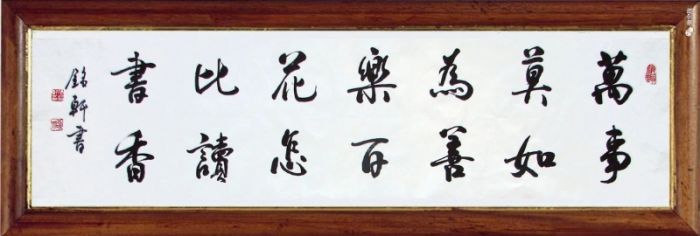 萬事
莫如
為善
樂百
花怎
比讀
書香
銘軒書